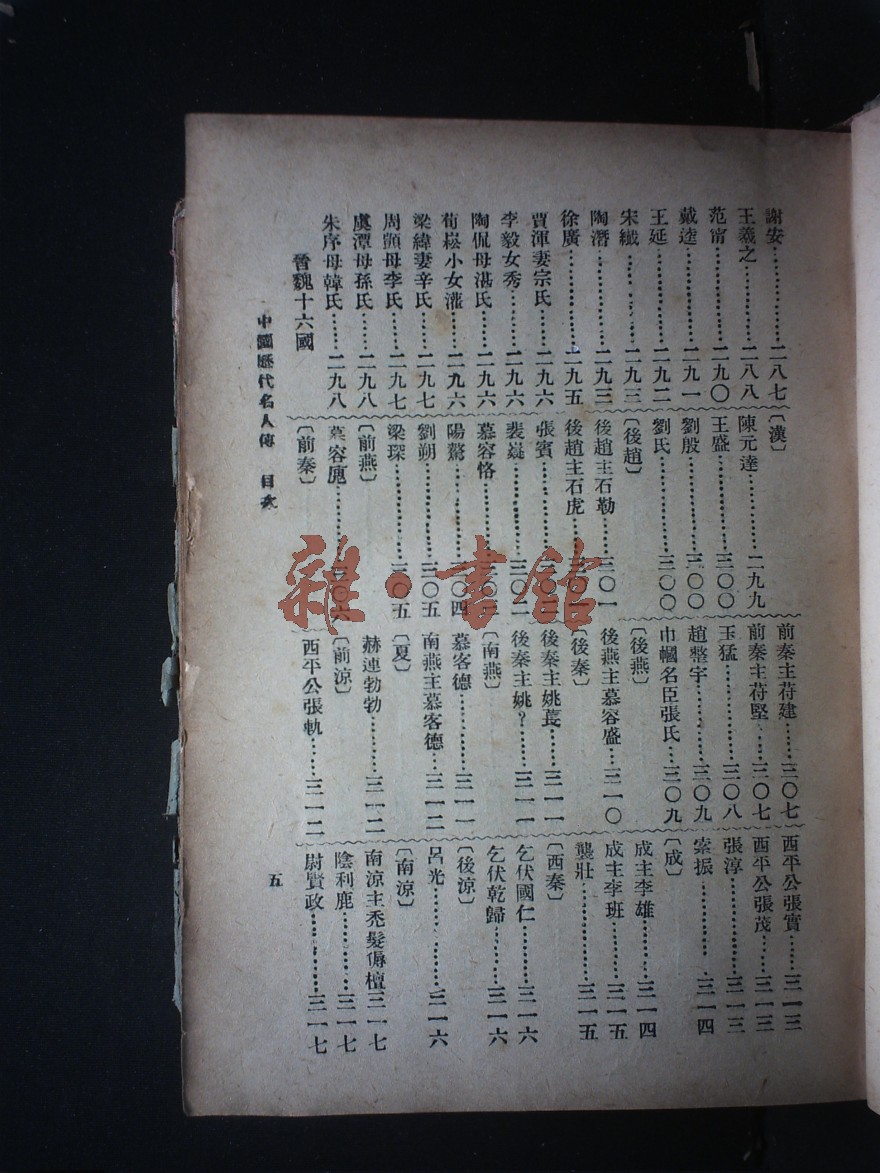 謝安………………二八七
王羲之……………二八八
范甯………………二九〇
戴逵………………二九一
王延………………二九二
宋纖………………二九三
陶潛………………二九三
徐廣………………二九五
賈渾妻宗氏………二九六
李毅女秀…………二九六
陶侃母湛氏………二九六
荀崧小女灌………二九六
梁緯妻辛氏………二九七
周顗母李氏………二九七
虞潭母孫氏………二九八
朱序母韓氏………二九八
晉魏十六國
〔漢〕
陳元達……………二九九
王盛………………三〇〇
劉殷………………三〇〇
劉氏………………三〇〇
〔後趙〕
後趙主石勒………三〇一
後趙主石虎
張賓
裴嶷………………三〇二
慕容恪
陽鶩………………三〇四
劉朔………………三〇五
梁琛………………三〇五
〔前燕〕
慕容廆………………三〇六
〔前秦〕
前秦主苻建………三〇七
前秦主苻堅………三〇七
王猛………………三〇八
趙整宇……………三〇九
巾幗名臣張氏……三〇九
〔後燕〕
後燕主慕容盛……三一〇
〔後秦〕
後秦主姚萇………三一一
後秦主姚?………三一一
〔南燕〕
慕客德……………三一一
南燕主慕客德……三一二
〔夏〕
赫連勃勃…………三一二
〔前涼〕
西平公張軌………三一二
西平公張實………三一三
西平公張茂………三一三
張淳………………三一三
索振………………三一四
〔成〕
成主李雄…………三一四
成主李班…………三一五
龔壯………………三一五
〔西秦〕
乞伏國仁…………三一六
乞伏乾歸…………三一六
〔後涼〕
呂光………………三一六
〔南涼〕
南涼主禿髮傉檀三一七
陰利鹿……………三一七
尉賢政……………三一七
中國歷代名人傳 目次
五
雜·書館